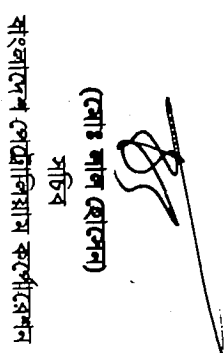 (মোঃ লাল হোসেন)
সচিব
বাংলাদেশ পেট্রোলিয়াম কর্পোরেশন